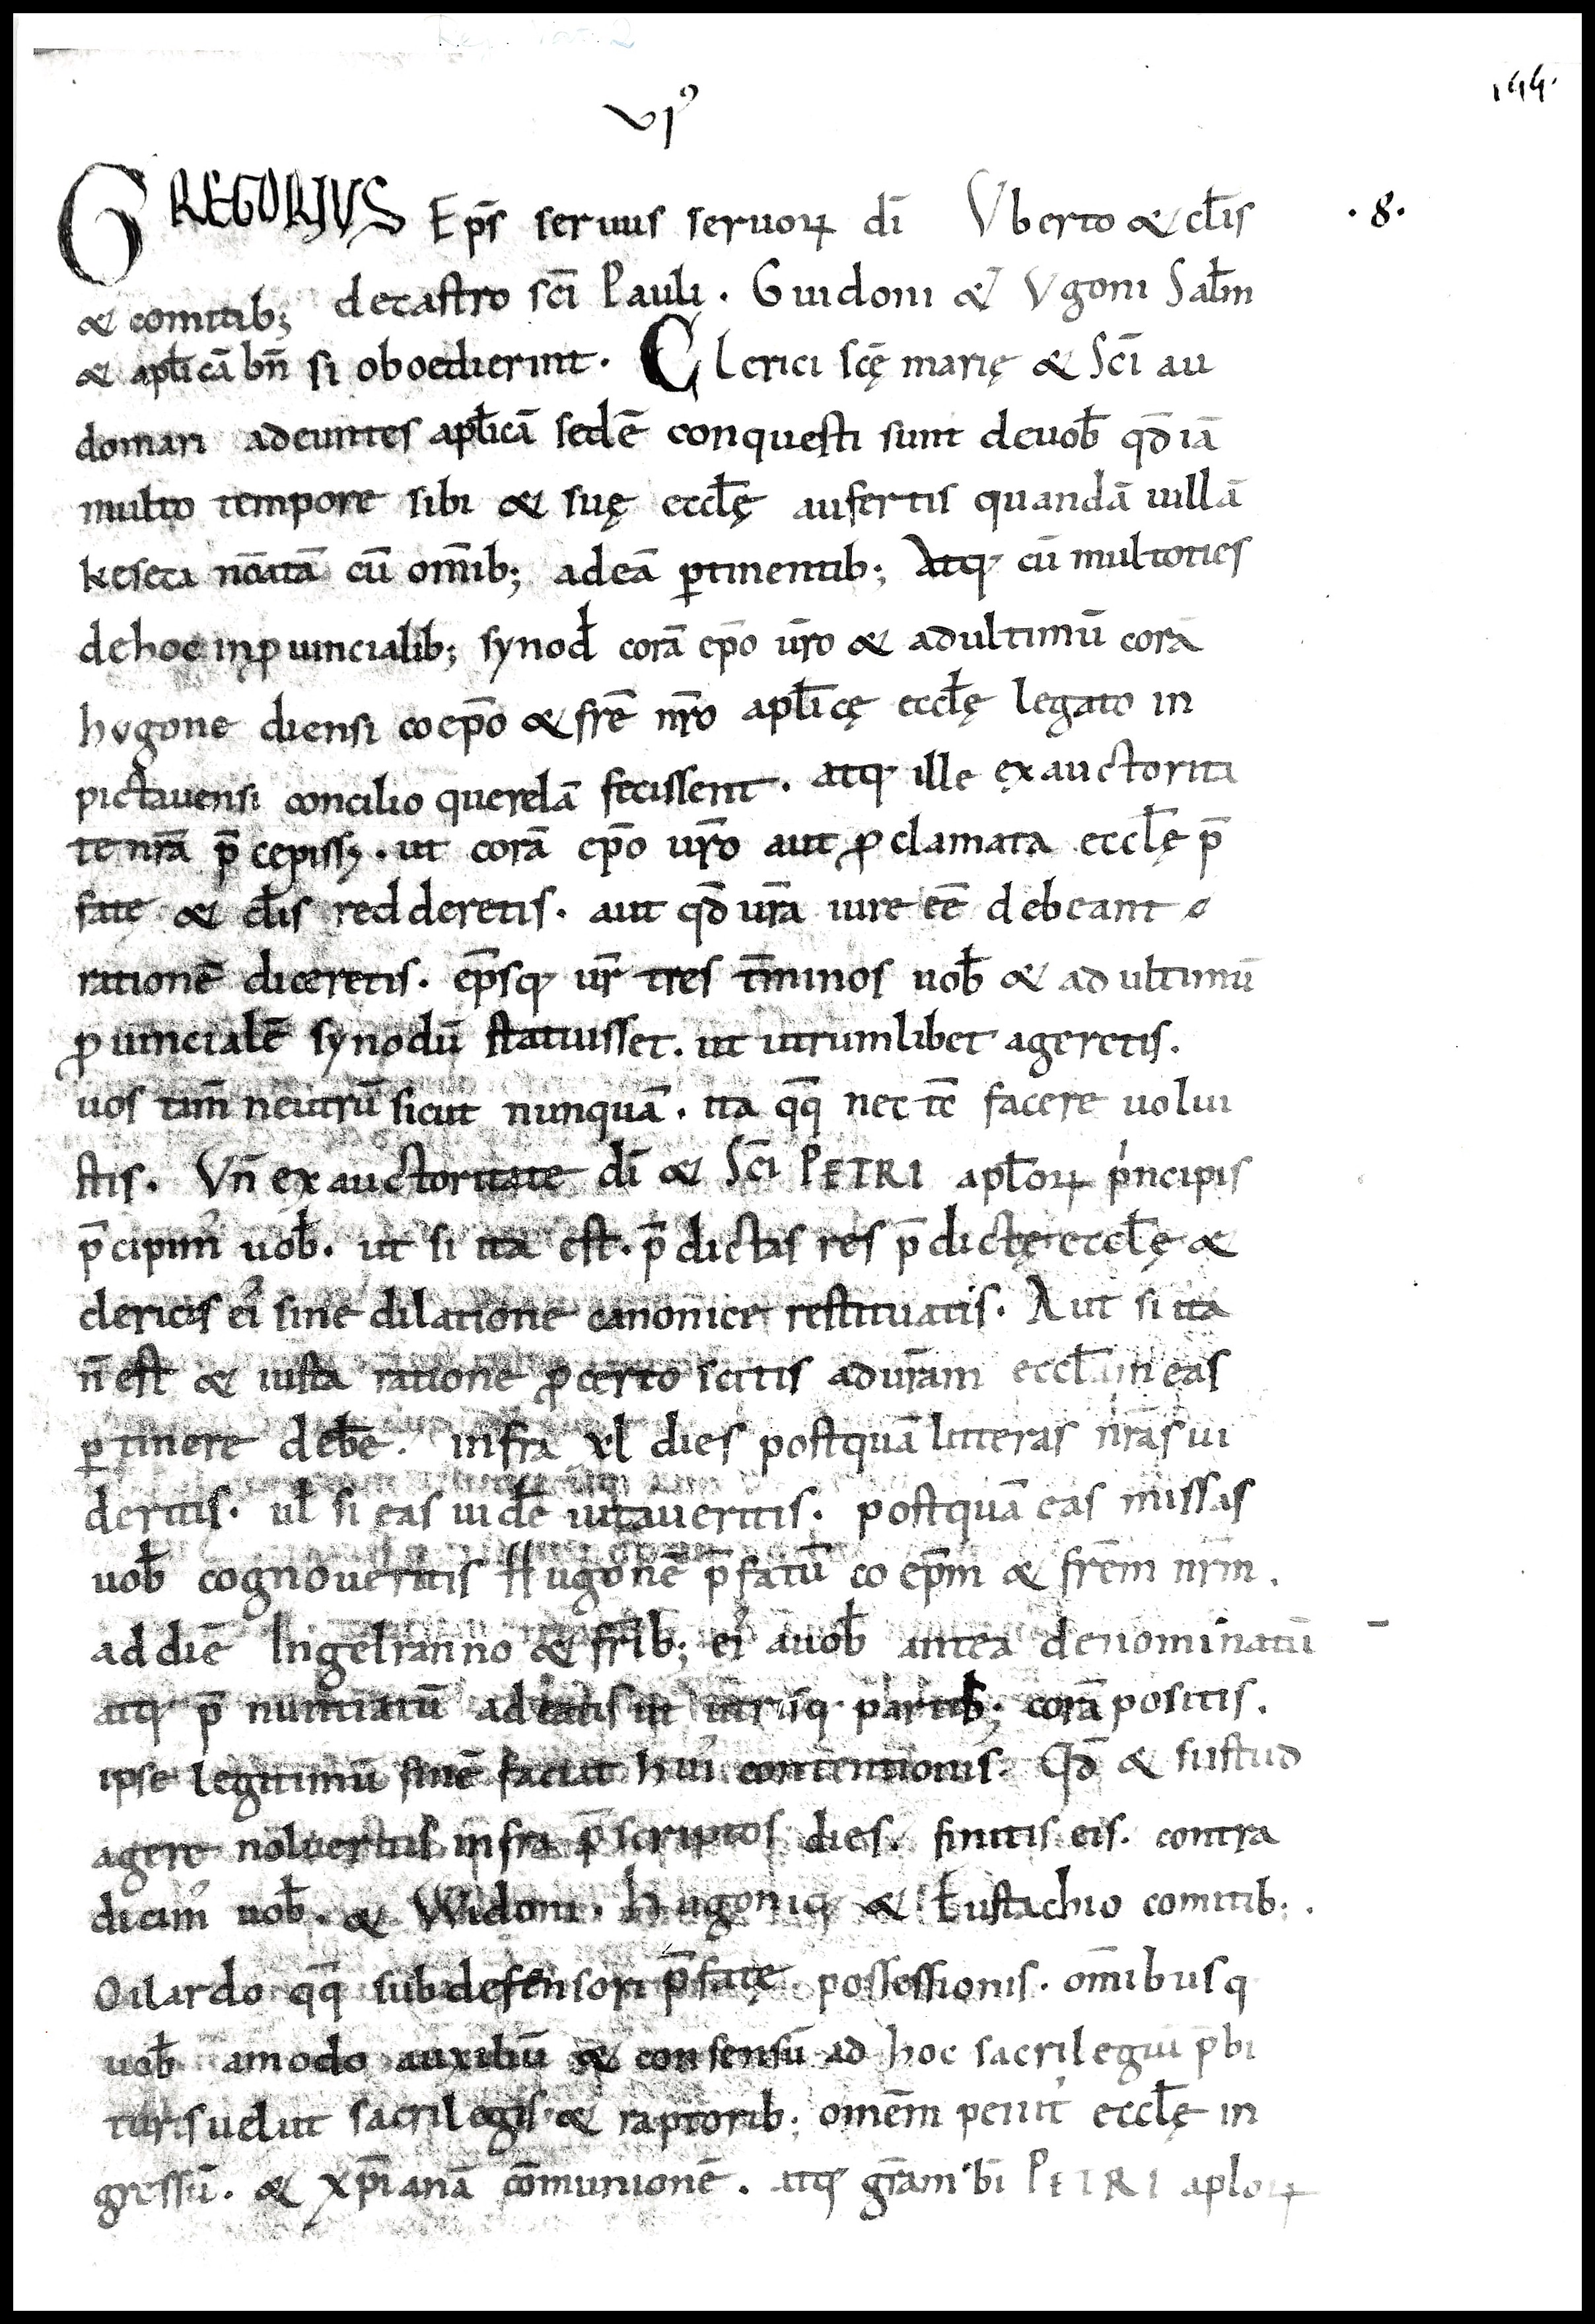 Reg. Vat. 2
144.
VIꝰ
GREGORIVS Ep̄s seruus seruoꝝ dī Vberto & cl̄is · 8 ·
& comitib; decastro sc̄i Pauli . Guidoni & Vgoni Sal̄m
& apl̄icā bn̄ si oboedierint . Clerici sc̄ę marię & Sc̄i au
domari adeuntes apl̄icā sedē conquesti sunt deuob̄ qd̄ iā
multo tempore sibi & suę eccl̄ę aufertis quandā uillā
keseca nōıatā cū om̄ib; adeā ꝑtinentib; Atq; cū multoties
dehoc inꝓuincialib; synod̄ corā ep̄o ūro & adultimū corā
hvgone diensi coep̄o & fr̄e nr̄o apl̄icę eccl̄ę legato in
pictauensi concilio querelā fecissent . atq; ille exauctorita
te nr̄a p̄cepiss; . ut corā ep̄o ur̄o aut ꝓclamata eccl̄ę p̄
fatę & cl̄is redderetis . aut qd̄ ur̄a iure eē debeant
rationē diceretis . ep̄sq; ur̄ tres tm̄inos uob̄ & ad ultimū
ꝓuincialē synodū statuisset . ut utrumlibet ageretis .
uos tam̄ neutrū sicut nunquā . ita qq̄ nec tc̄ facere uolui
stis . Vn̄ ex auctoritate dī & Sc̄i PETRI apl̄oꝝ pͥncipis
p̄cipimꝰ uob̄ . ut si ita est . p̄dictas res p̄dictę eccl̄ę &
clericis eiꝰ sine dilatione canonice restituatis . Aut si ita
n̄ est & iusta ratione ꝓcerto scitis adur̄am eccl̄am eas
ꝑtinere deb̄e . infra xl dies postquā litteras nr̄as ui
deritis . ul̄ si eas uid̄e uitaueritis . postquā eas missas
uob̄ cognoueritis Hugonē p̄fatū co ep̄m & fr̄em nr̄m .
addiē Ingelranno & fr̄ib; eiꝰ auob̄ antea denominatū
atq; p̄nuntiatū adeatis ut utrisq; partib; corā positis .
ipse legitimū finē faciat huiꝰ contentionis . Qd̄ & si istud
agere nolueritis infra p̄scriptos dies . finitis eis . contra
dicimꝰ uob̄ . & Widoni . Hugoniq; & Eustachio comitib; .
Oilardo qq̄ subdefensori p̄fatę possessionis . om̄ibusq
uob̄ amodo auxiliū & consensū ad hoc sacrilegiū p̄bi
turis uelut sacrilegis & raptorib; om̄em penitꝰ eccl̄ę in
gressū . & xp̄ianā cōmunionē . atq; gr̄am bī PETRI aploꝝ